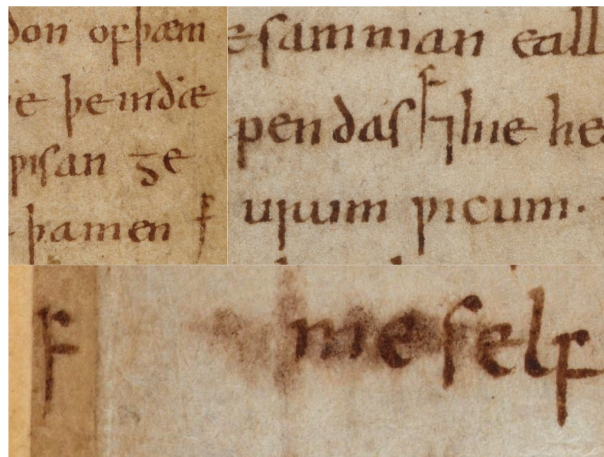 don of þæm
e þe indiæ
ƿisan ge
þa men f
esamnian eall
pendas f ⁊ hie he
urum ƿicum·
f me self